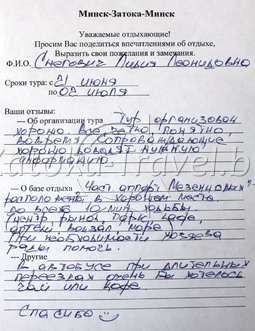 Минск-Затока-Минск
Уважаемые отдыхающие!
Просим Вас поделиться впечатлениями об отдыхе,
Выразить свои пожелания и замечания.
Ф.И.О. Снегович Лидия Леонидовна
Сроки тура: с 21 июня
по 02 июля
Ваши отзывы:
--- Об организации тура Тур организован
хорошо. Все четко, понятно,
вовремя. Сопровождающие
хорошо доводят нужную
информацию.
--- О базе отдыха Част. аппорт.
расположены в хорошем месте
до всего 10 мин ходьбы
(центр рынок парк кафе,
вокзал море).
При необходимости хозяева
рады помочь.
--- Другие
В автобусе при длительных
переездах очень бы хотелось
чая или кофе.
Спасибо